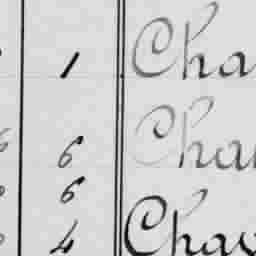 1 Cha
6 Cha
6
4 Chav